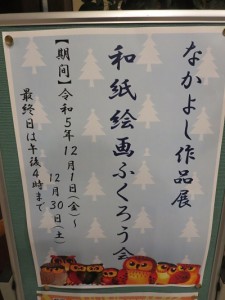 なかよし作品展
和紙絵画ふくろう会
【期間】令和5年12月1日(金)~
12月30日(土)
最終日は午後4時まで